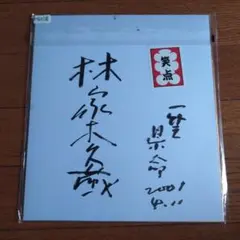 笑点
一生懸命
2001
4.11
林家木久蔵